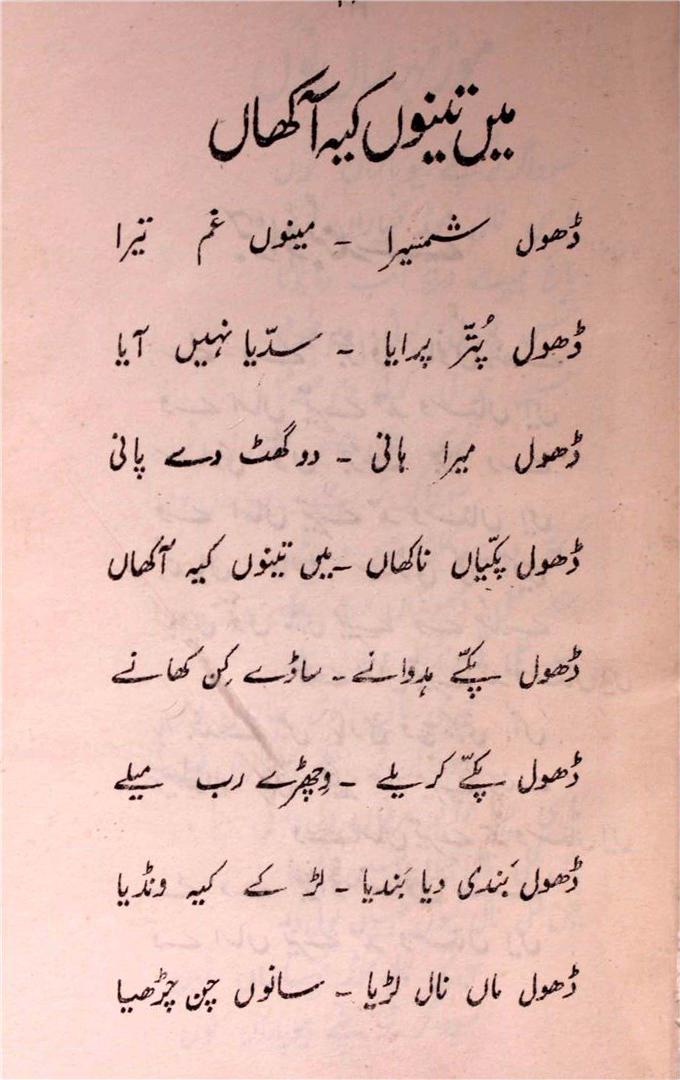 میں تینوں کیہ آکھاں
ڈھول شمشیرا ۔ مینوں غم تیرا
ڈھول پُتّر پرایا ۔ سدّیا نہیں آیا
ڈھول میرا ہانی ۔ دو گھٹ دے پانی
ڈھول پکّیاں ناکھاں ۔ میں تینوں کیہ آکھاں
ڈھول پکّے ہدوانے ۔ ساڈے کِن کھانے
ڈھول پکّے کریلے ۔ وچھڑے رب میلے
ڈھول بَندی دیا بَندیا ۔ لڑ کے کیہ ونڈیا
ڈھول ماں نال لڑیا ۔ سانوں چن چڑھیا